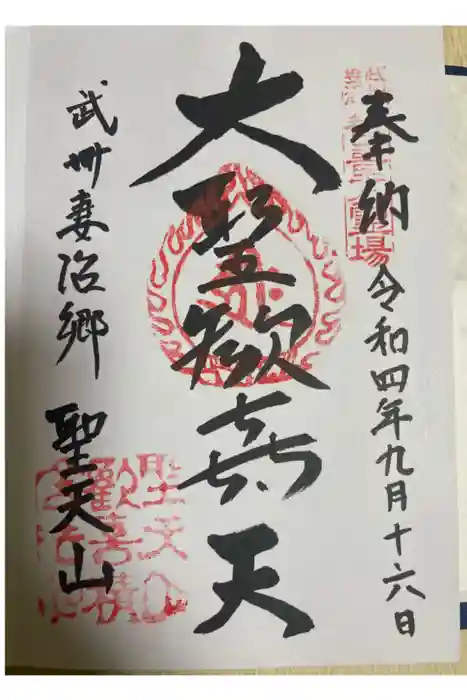 奉納 令和四年九月十六日
大聖歓喜天
武州妻沼郷 聖天山